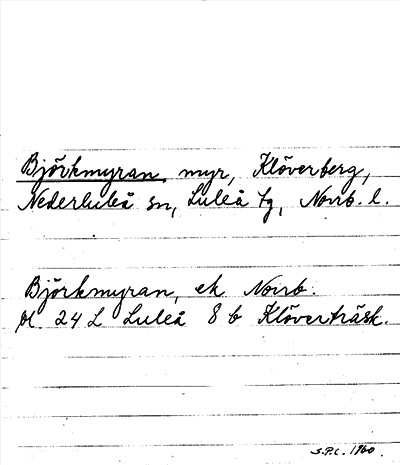 Björkmyran, myr, Klöverberg,
Nederluleå sn, Luleå tg, Norrb. l.
Björkmyran, ek Norrb.
bl. 24 L Luleå 8 b Klöverträsk.
S.P.C. 1960